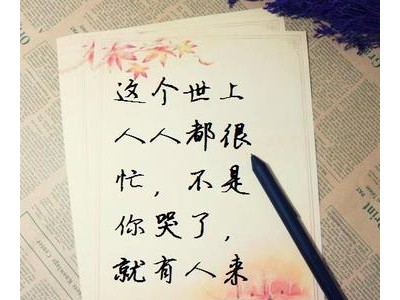 这个世上
人人都很
忙，不是
你哭了，
就有人来